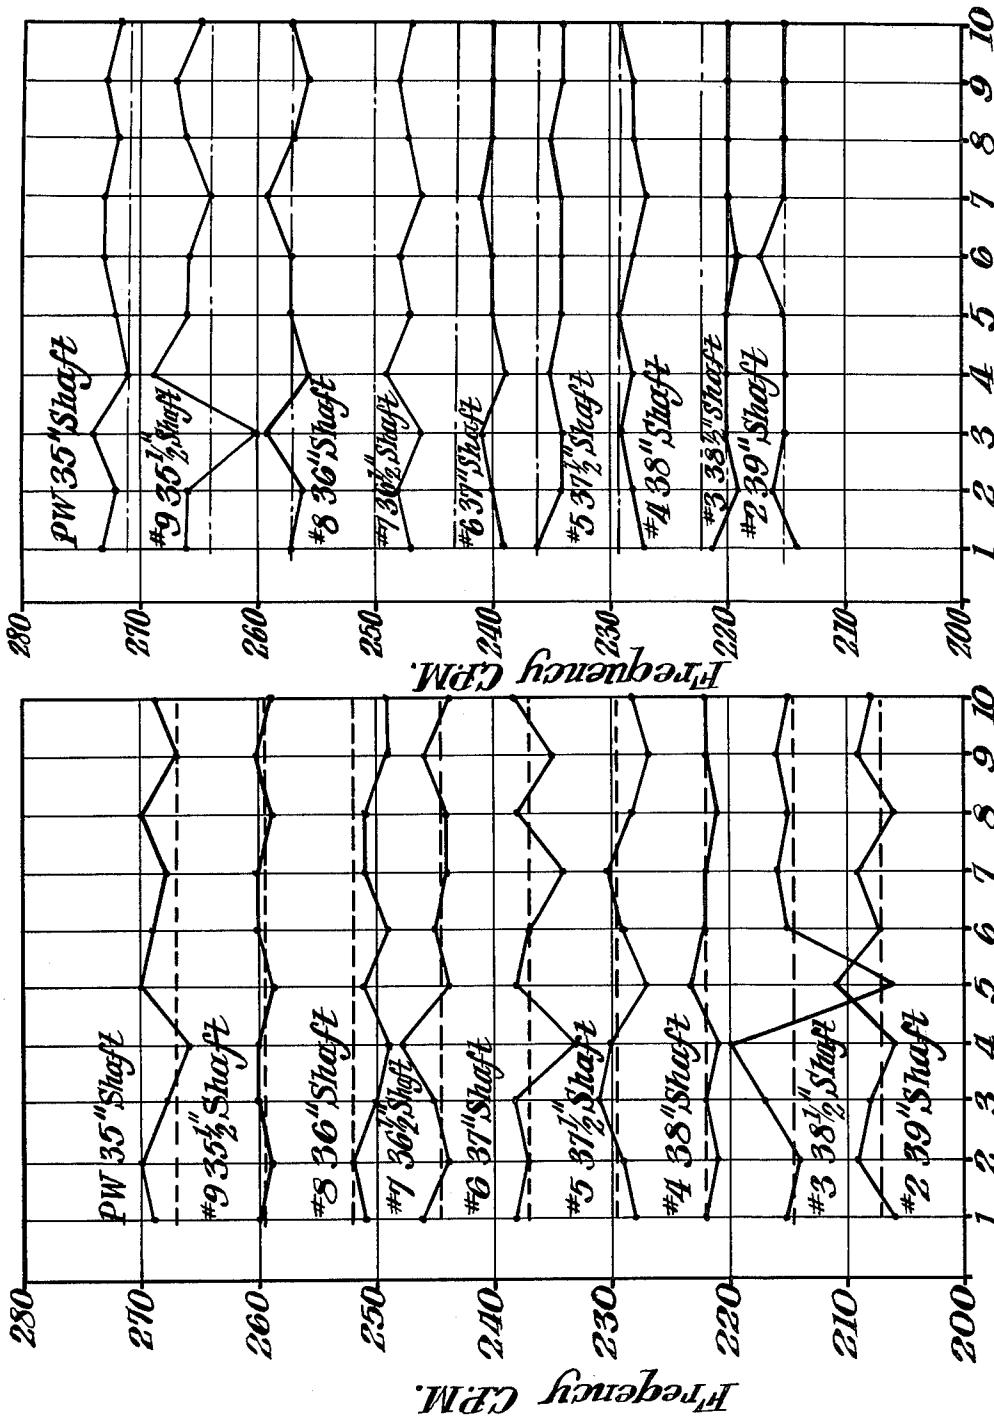 Freqency C.P.M.
280
270
260
250
240
230
220
210
200
PW 35" Shaft
#9 35½" Shaft
#8 36" Shaft
#7 36½" Shaft
#6 37" Shaft
#5 37½" Shaft
#4 38" Shaft
#3 38½" Shaft
#2 39" Shaft
1 2 3 4 5 6 7 8 9 10
Frequency C.P.M.
280
270
260
250
240
230
220
210
200
PW 35" Shaft
#9 35½" Shaft
#8 36" Shaft
#7 36½" Shaft
#6 37" Shaft
#5 37½" Shaft
#4 38" Shaft
#3 38½" Shaft
#2 39" Shaft
1 2 3 4 5 6 7 8 9 10